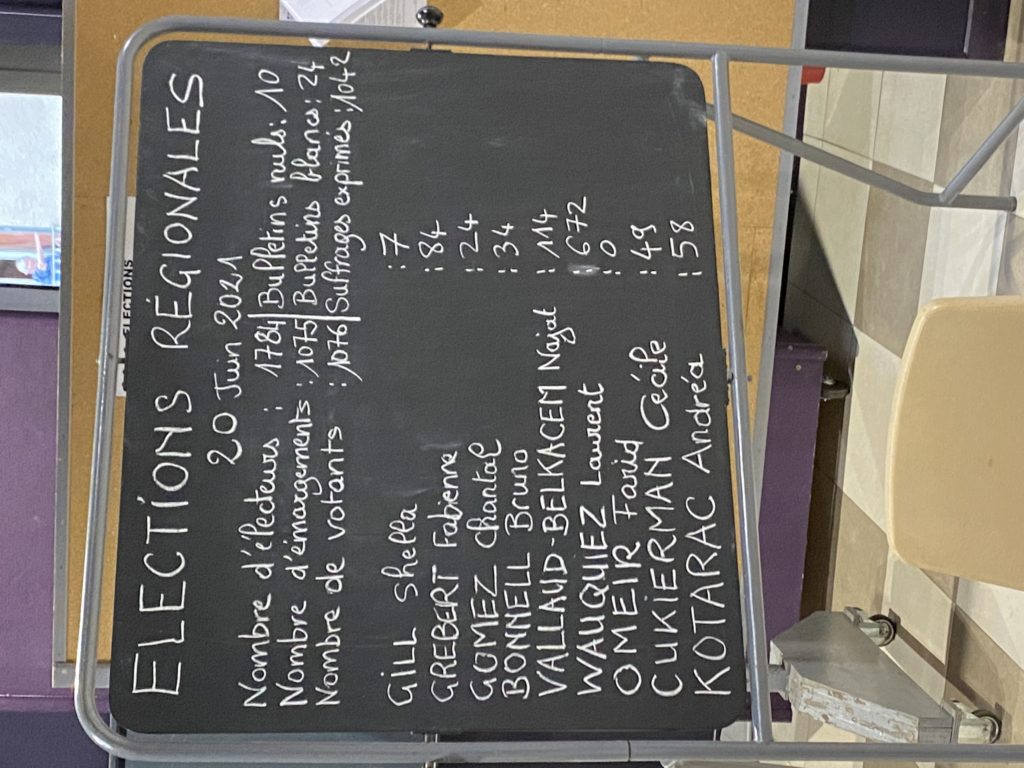 ELECTIONS
ELECTIONS RÉGIONALES
20 Juin 2021
Nombre d'électeurs : 1784 Bulletins nuls: 10
Nombre d'émargements : 1075 Bulletins blancs: 24
Nombre de votants : 1076 Suffrages exprimés : 1042
GILL Shella : 7
GREBERT Fabienne : 84
GOMEZ Chantal : 24
BONNELL Bruno : 34
VALLAUD-BELKACEM Najat : 114
WAUQUIEZ Laurent : 672
OMEIR Farid : 0
CUKIERMAN Cécile : 49
KOTARAC Andréa : 58